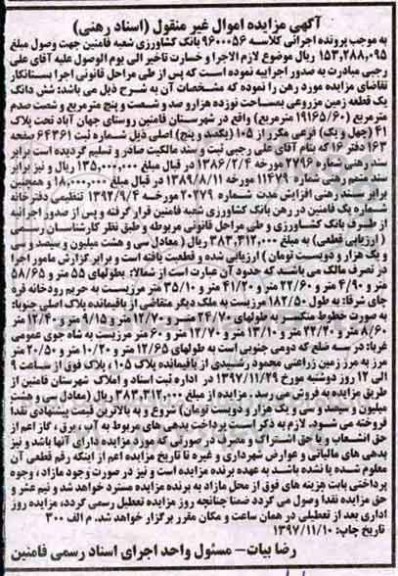 آگهی مزایده اموال غیر منقول (اسناد رهنی)
به موجب پرونده اجرائی کلاسه ۹۶۰۰۰۵۶ بانک کشاورزی شعبه فامنین جهت وصول مبلغ
۱۵۳٫۲۸۸٫۰۹۵ ریال موضوع لازم الاجرا و خسارت تاخیر الی یوم الوصول علیه آقای علی
رجبی مبادرت به صدور اجرائیه نموده است که پس از طی مراحل قانونی اجرا بستانکار
تقاضای مزایده مورد رهن را نموده که مشخصات آن به شرح ذیل می باشد: شش دانگ
یک قطعه زمین مزروعی بمساحت نوزده هزار و صد و شصت و پنج مترمربع و شصت صدم
مترمربع (۱۹۱۶۵/۶۰ مترمربع) واقع در شهرستان فامنین روستای جهان آباد تحت پلاک
۴۱ (چهل و یک) فرعی مفرز از ۱۰۵ (یکصد و پنج) اصلی ذیل شماره ثبت ۶۴۳۶۱ صفحه
۱۶۳ دفتر ۱۶ که بنام آقای علی رجبی ثبت و سند مالکیت صادر و تسلیم گردیده است برابر
سند رهنی شماره ۲۷۹۶ مورخه ۱۳۸۶/۲/۴ در قبال مبلغ ۱۳۵٫۰۰۰٫۰۰۰ ریال و نیز برابر
سند متمم رهنی شماره ۱۱۴۷۹ مورخه ۱۳۸۹/۸/۱۱ در قبال مبلغ ۱۸٫۰۰۰٫۰۰۰ و همچنین
برابر سند رهنی افزایش مدت شماره ۲۰۲۷۹ مورخه ۱۳۹۲/۹/۴ تنظیمی دفترخانه
شماره یک فامنین در رهن بانک کشاورزی شعبه فامنین قرار گرفته و پس از صدور اجرائیه
از طرف بانک کشاورزی و طی مراحل قانونی مربوطه و طبق نظر کارشناسان رسمی
(ارزیابی قطعی) به مبلغ ۳۸۳٫۳۱۲٫۰۰۰ ریال (معادل سی و هشت میلیون و سیصد و سی
و یک هزار و دویست تومان) ارزیابی شده و قطعیت یافته است و برابر گزارش مامور اجرا
در تصرف مالک می باشد که حدود آن عبارت است از شمالا: بطولهای ۵۵ متر و ۵۸/۶۵
متر و ۴/۹۰ متر و ۲۲/۶۰ متر و ۴۱/۲۰ متر و ۳۵/۱۰ متر مرزیست به حریم رودخانه قره
چای شرقا: به طول ۱۸۲/۵۰ مرزیست به ملک دیگر متقاضی از باقیمانده پلاک اصلی جنوبا:
به صورت خطوط منکسر به طولهای ۲۴/۷۰ متر و ۱۲/۷۰ متر و ۹/۱۵ متر و ۱۲/۴۰ متر
۸/۶۰ متر و ۲۲/۲۰ متر و ۱۳/۱۰ متر و ۱۲/۷۰ متر و ۶۰ متر مرزیست به شاه جوی عمومی
غربا: در سه ضلع که دومی جنوبی است به طولهای ۱۲/۶۵ متر و ۱۰/۲۰ متر و ۲۰/۵۰ متر
مرز به مرز زمین زراعتی محمود رشیدی از باقیمانده پلاک ۱۰۵، پلاک فوق از ساعت ۹
الی ۱۲ روز دوشنبه مورخ ۱۳۹۷/۱۱/۲۹ در اداره ثبت اسناد و املاک شهرستان فامنین از
طریق مزایده به فروش می رسد. مزایده از مبلغ ۳۸۳٫۳۱۲٫۰۰۰ ریال (معادل سی و هشت
میلیون و سیصد و سی و یک هزار و دویست تومان) شروع و به بالاترین قیمت پیشنهادی نقدا
فروخته می شود. لازم به ذکر است پرداخت بدهی های مربوط به آب، برق، گاز اعم از
حق انشعاب و یا حق اشتراک و مصرف در صورتی که مورد مزایده دارای آنها باشد و نیز
بدهی های مالیاتی و عوارض شهرداری و غیره تا تاریخ مزایده اعم از اینکه رقم قطعی آن
معلوم شده یا نشده باشد به عهده برنده مزایده است و نیز در صورت وجود مازاد، وجوه
پرداختی بابت هزینه های فوق از محل مازاد به برنده مزایده مسترد خواهد شد و نیم عشر و
حق مزایده نقدا وصول می گردد ضمنا چنانچه روز مزایده تعطیل رسمی گردد، مزایده روز
اداری بعد از تعطیلی در همان ساعت و مکان مقرر برگزار خواهد شد. م الف ۳۰۰
تاریخ چاپ: ۱۳۹۷/۱۱/۱۰
رضا بیات- مسئول واحد اجرای اسناد رسمی فامنین